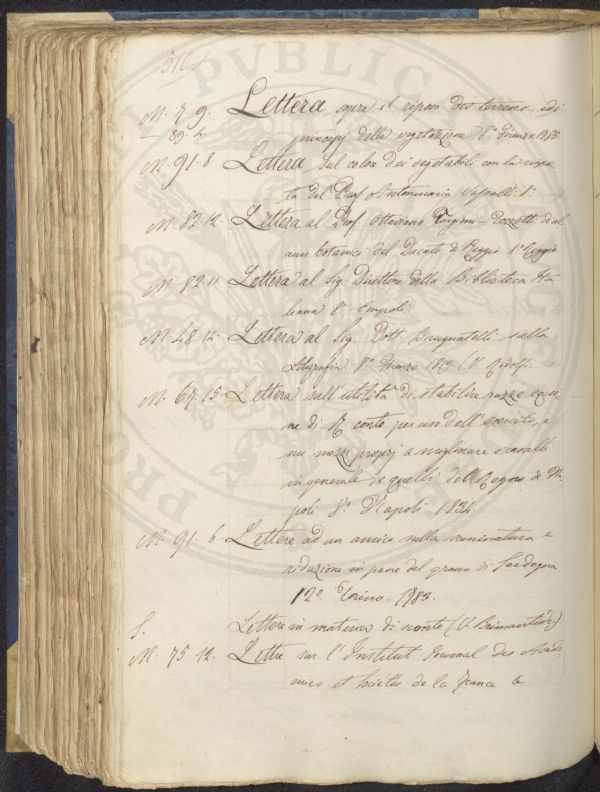 510
M. 7. 9. Lettera sopra il riposo dei terreni, ed i
89. 4. principj della vegetazione 8.° Firenze
M. 91. 8. Lettera sul colore dei vegetabili con la rispo
ta del Prof. Antonmaria Vassalli 8.°
M. 82. 12. Lettera al Prof. Ottaviano Targioni-Tozzetti di al
cuni botanici del Ducato di Reggio 8.° Reggio
M. 82. 11. Lettera al Sig. Direttore della Biblioteca Ita
liana 8.° Empoli.
M. 48. 14. Lettera al Sig. Dott. Brugnatelli sulla
Litografia 8.° Firenze 1819. (V. Ridolfi
M. 67. 15. Lettera sull'utilità di stabilire razze equi
ne di R. conto per uso dell'Esercito, e
sui mezzi proprj a migliorare i cavalli
in generale, e quelli del Regno di Na
poli 8.° Napoli 1834.
M. 91. 6. Lettere ad un amico sulla seminatura e
riduzione in pane del grano di Sardegna
12.° Torino. 1783.
S. Lettere in materia di sconto (V.
M. 75. 12. Lettre sur l'Institut Journal des Acadé
mies et Sociétés de la France &